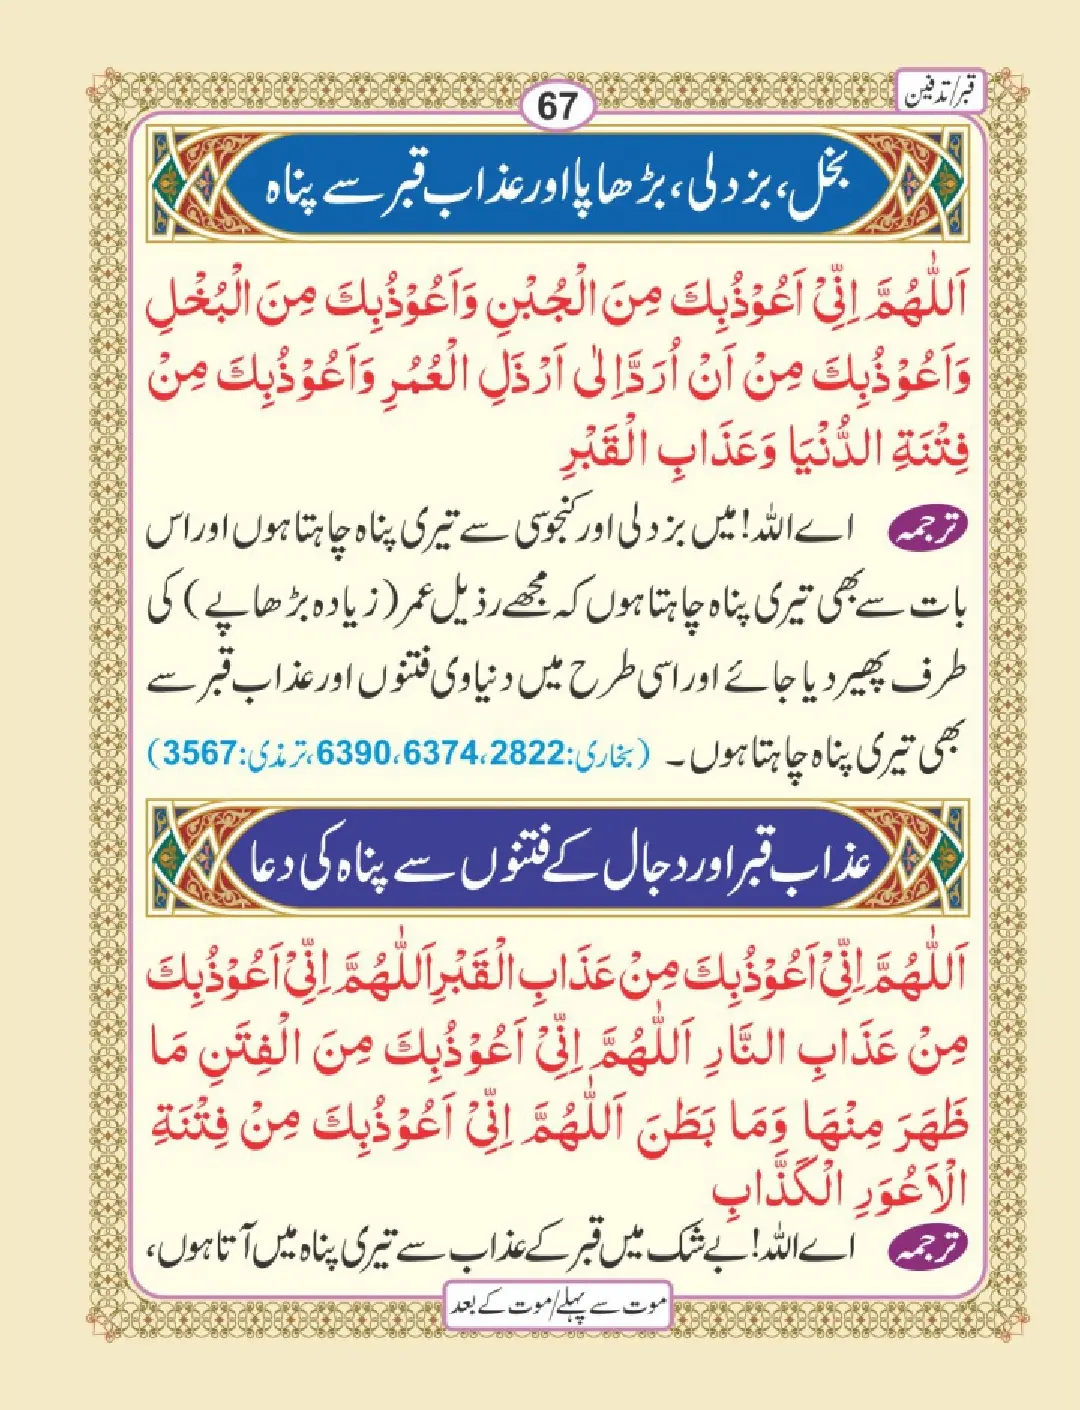 قبر/تدفین
67
بخل، بزدلی، بڑھاپا اور عذاب قبر سے پناہ
اَللّٰهُمَّ اِنِّیْ اَعُوْذُبِكَ مِنَ الْجُبْنِ وَاَعُوْذُبِكَ مِنَ الْبُخْلِ
وَاَعُوْذُبِكَ مِنْ اَنْ اُرَدَّ اِلٰی اَرْذَلِ الْعُمُرِ وَاَعُوْذُبِكَ مِنْ
فِتْنَةِ الدُّنْيَا وَعَذَابِ الْقَبْرِ
ترجمہ اے اللہ! میں بزدلی اور کنجوسی سے تیری پناہ چاہتا ہوں اور اس
بات سے بھی تیری پناہ چاہتا ہوں کہ مجھے رذیل عمر (زیادہ بڑھاپے) کی
طرف پھیر دیا جائے اور اسی طرح میں دنیاوی فتنوں اور عذاب قبر سے
بھی تیری پناہ چاہتا ہوں۔ (بخاری: 2822، 6374، 6390، ترمذی: 3567)
عذاب قبر اور دجال کے فتنوں سے پناہ کی دعا
اَللّٰهُمَّ اِنِّیْ اَعُوْذُبِكَ مِنْ عَذَابِ الْقَبْرِ اَللّٰهُمَّ اِنِّیْ اَعُوْذُبِكَ
مِنْ عَذَابِ النَّارِ اَللّٰهُمَّ اِنِّیْ اَعُوْذُبِكَ مِنَ الْفِتَنِ مَا
ظَهَرَ مِنْهَا وَمَا بَطَنَ اَللّٰهُمَّ اِنِّیْ اَعُوْذُبِكَ مِنْ فِتْنَةِ
الْاَعْوَرِ الْكَذَّابِ
ترجمہ اے اللہ! بے شک میں قبر کے عذاب سے تیری پناہ میں آتا ہوں،
موت سے پہلے/موت کے بعد